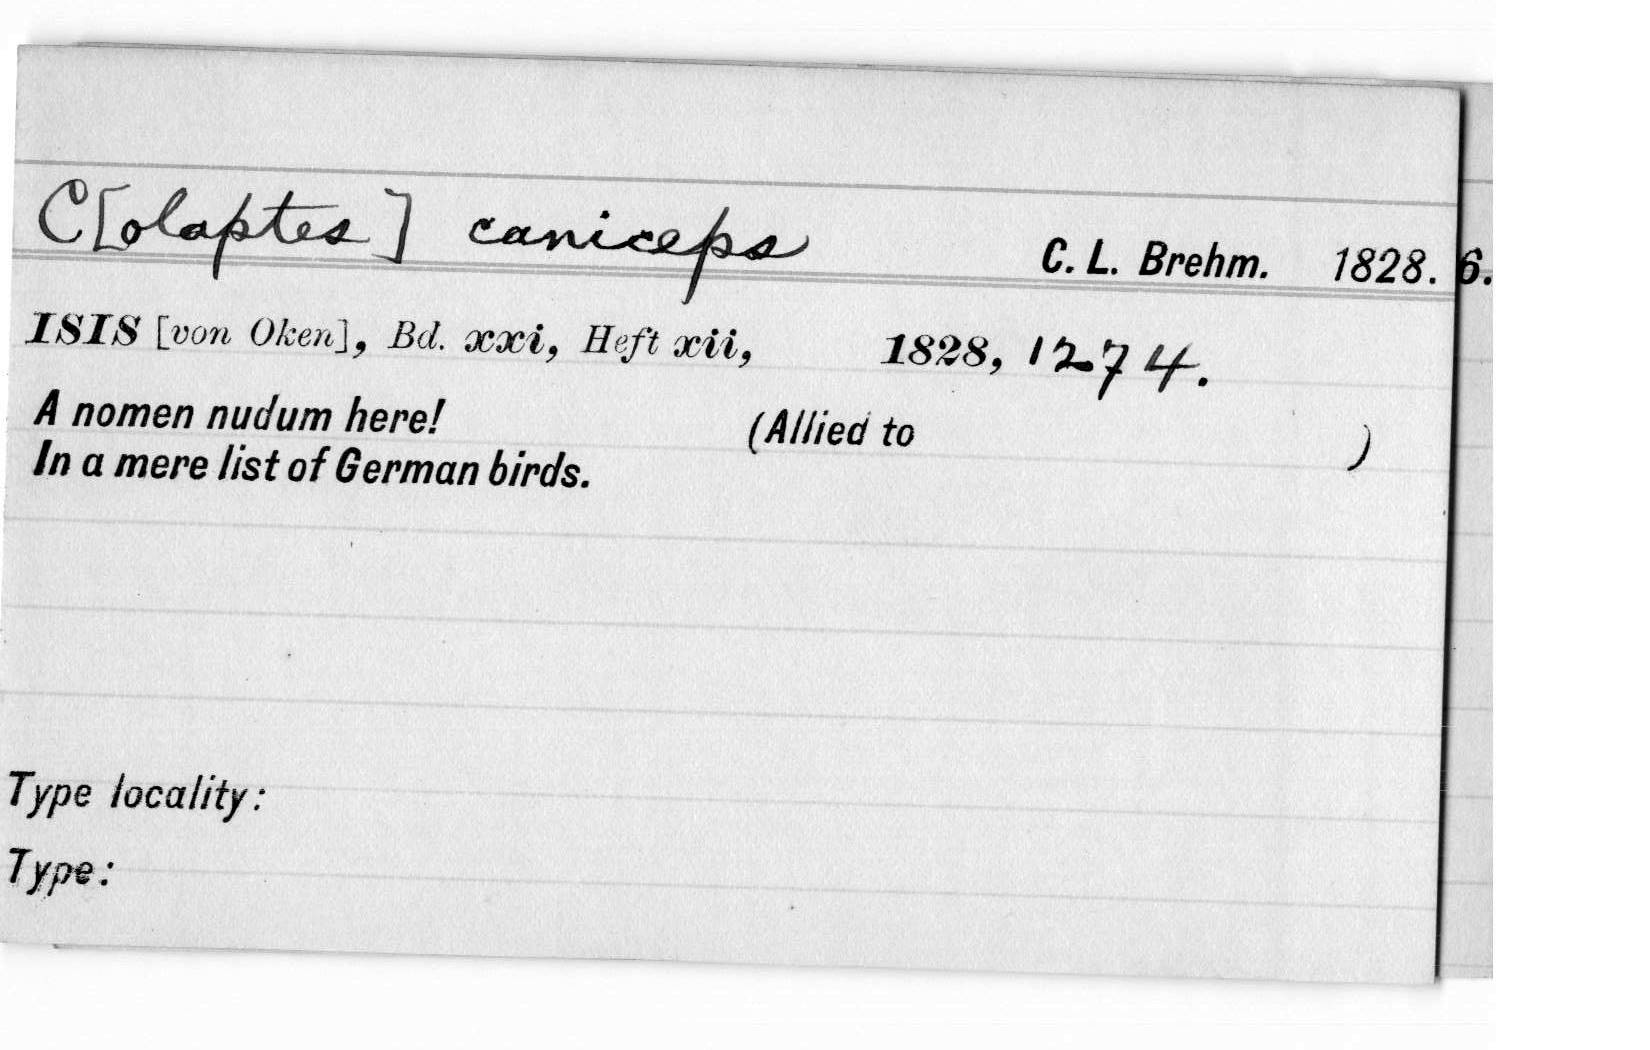 C[olaptes] caniceps C. L. Brehm. 1828. 6.
ISIS [von Oken], Bd. xxi, Heft xii, 1828, 1274.
A nomen nudum here! (Allied to )
In a mere list of German birds.
Type locality:
Type: